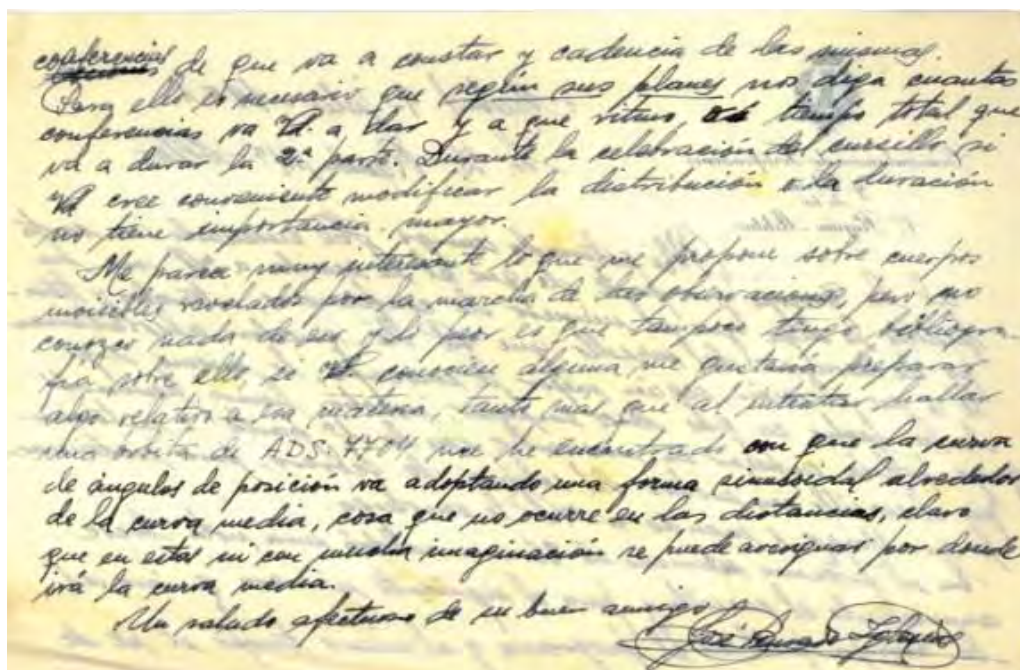 conferencias de que va a constar y cadencia de las mismas.
Para ello es necesario que según sus planes nos diga cuantas
conferencias va Vd. a dar y a que ritmo, tiempo total que
va a durar la 2ª parte. Durante la celebración del cursillo si
Vd cree conveniente modificar la distribución o la duración
no tiene importancia mayor.
Me parece muy interesante lo que me propone sobre cuerpos
invisibles revelados por la marcha de las observaciones, pero no
conozco nada de eso y lo peor es que tampoco tengo bibliogra-
fía sobre ello, si Vd. conociese alguna me gustaría preparar
algo relativo a esa materia, tanto mas que al intentar hallar
una órbita de ADS. 7704 me he encontrado con que la curva
de ángulos de posición va adoptando una forma sinusoidal alrededor
de la curva media, cosa que no ocurre en las distancias, claro
que en estas ni con mucha imaginación se puede averiguar por donde
irá la curva media.
Un saludo afectuoso de su buen amigo
José